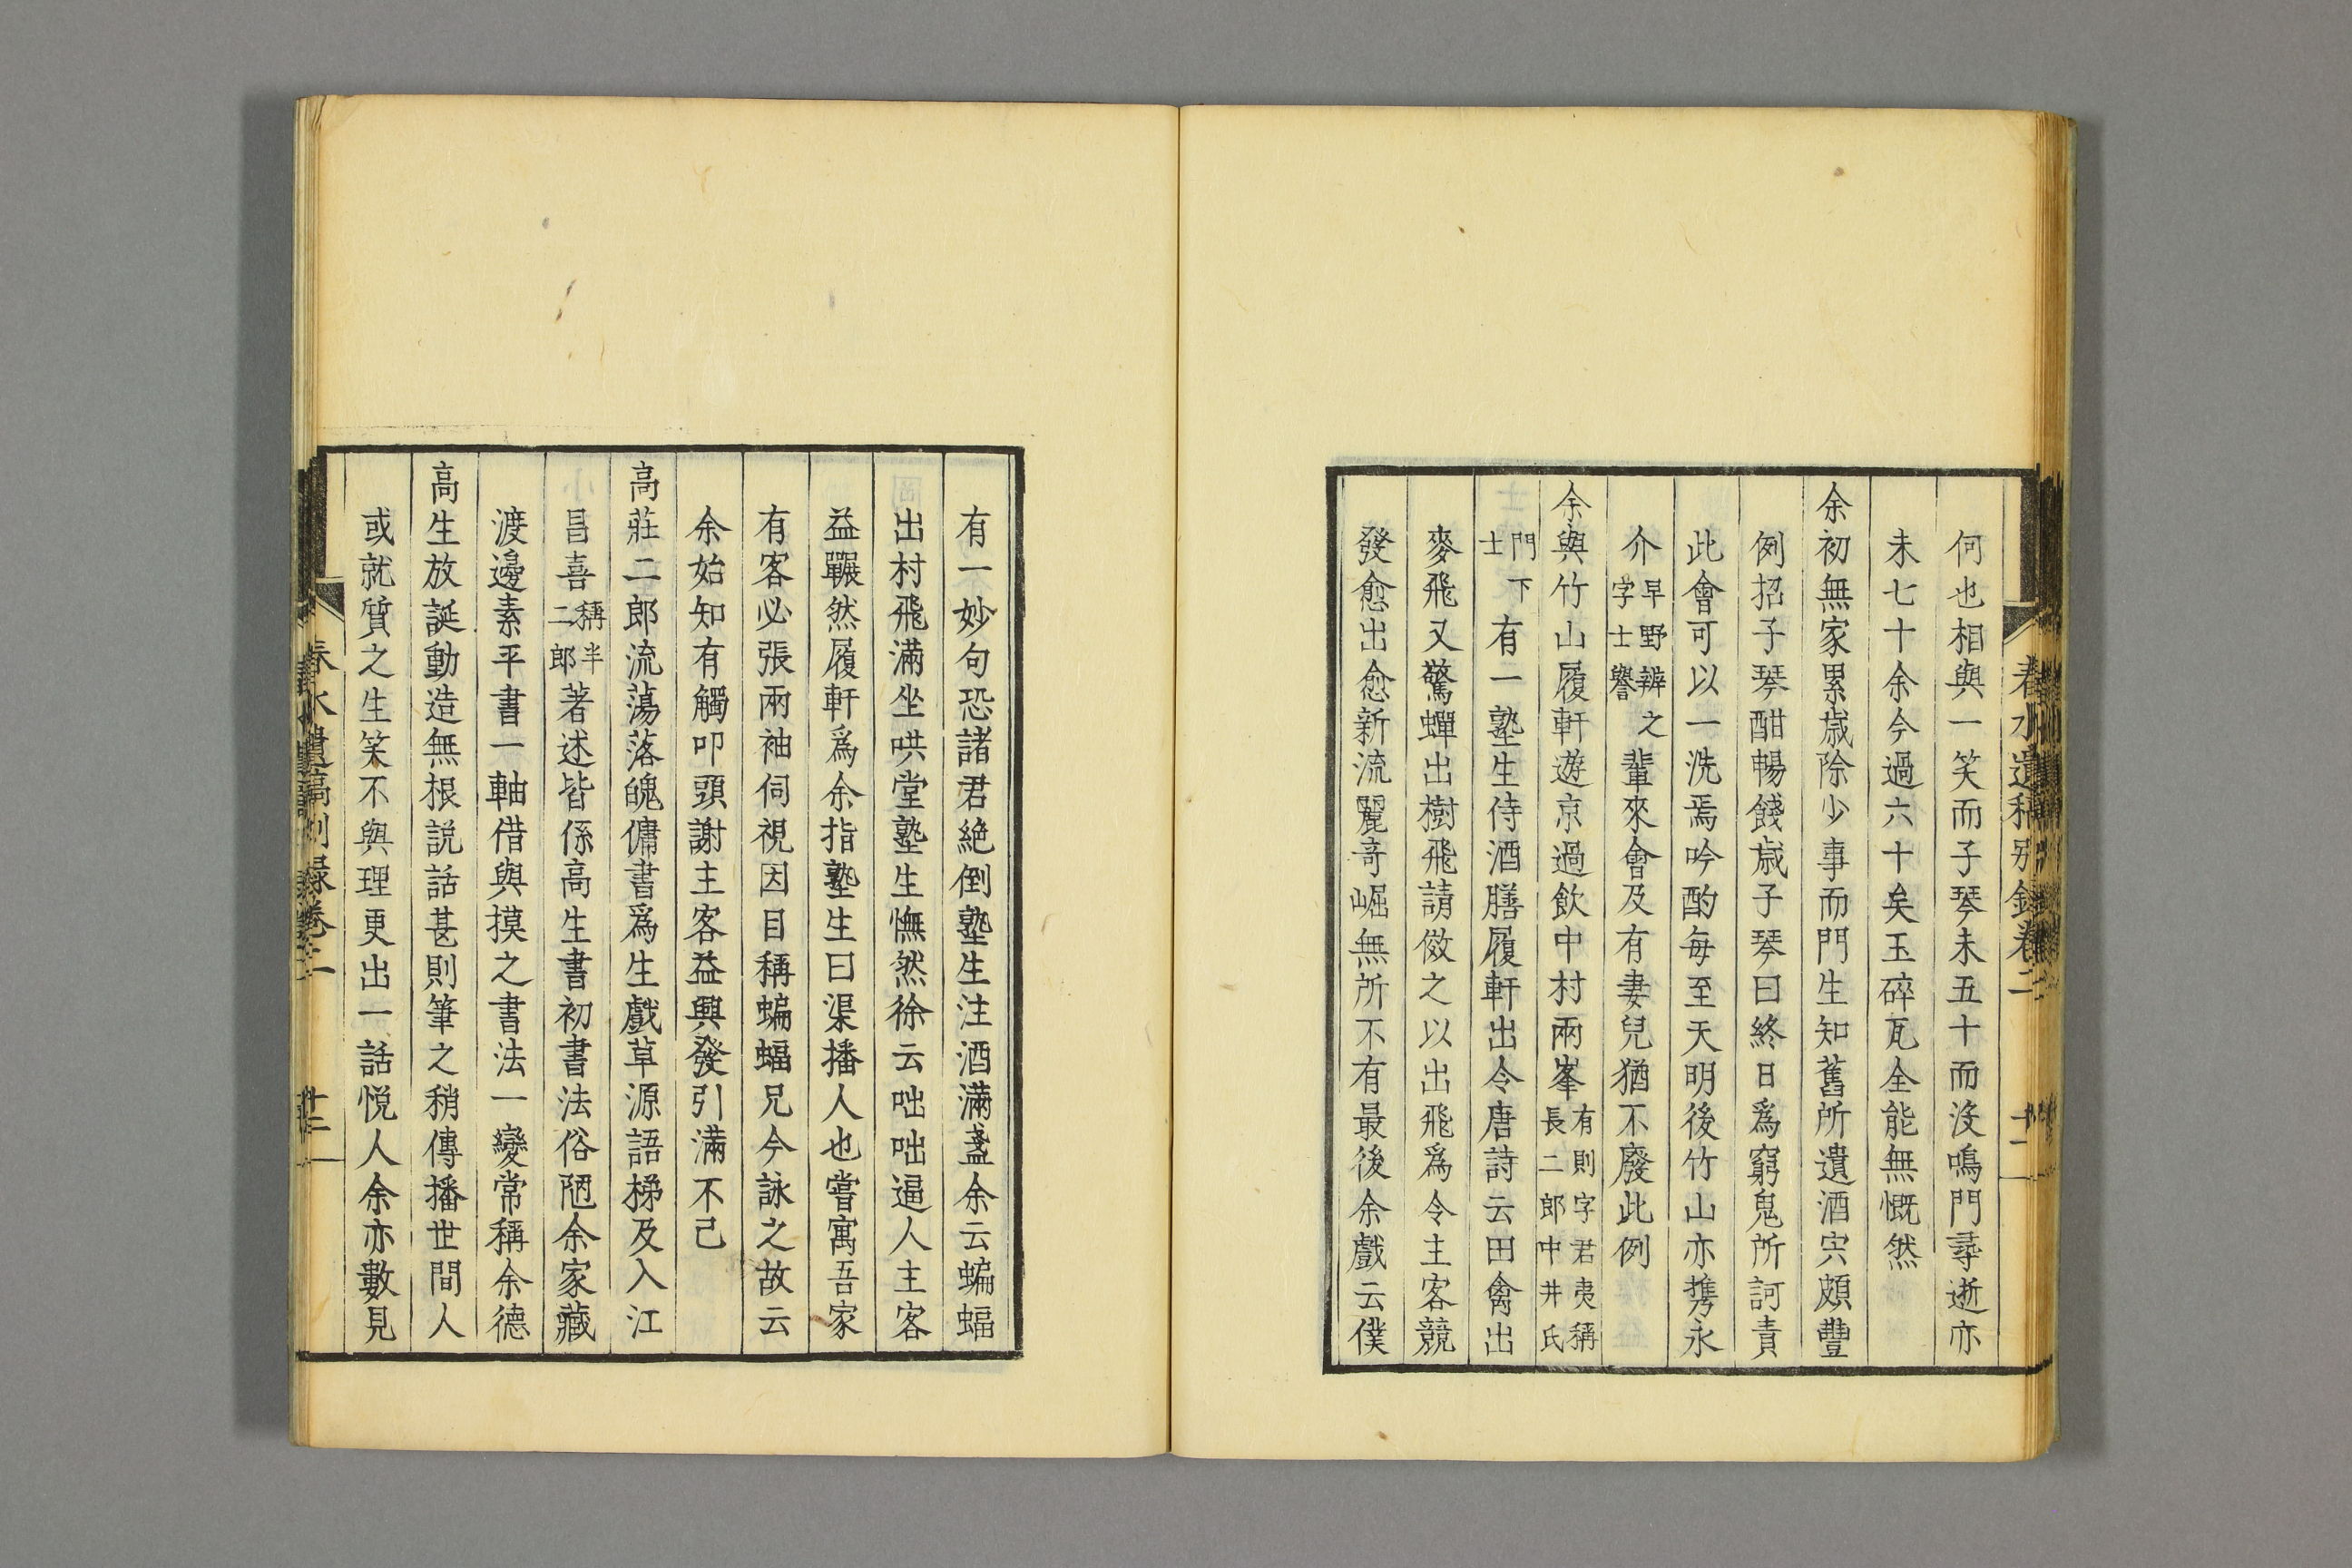 春水遺稿別録卷二
十二
何也相與一笑而子琴未五十而沒鳴門尋逝亦
未七十余今過六十矣玉碎瓦全能無慨然
余初無家累歳除少事而門生知舊所遺酒宍頗豐
例招子琴酣暢餞歳子琴曰終日爲窮鬼所訶責
此會可以一洗焉吟酌毎至天明後竹山亦携永
介早野辨之字士譽輩來會及有妻兒猶不廢此例
余與竹山履軒遊京過飲中村兩峯有則字君夷稱長二郎中井氏
門下士有一塾生侍酒膳履軒出令唐詩云田禽出
麥飛又驚蟬出樹飛請傚之以出飛爲令主客競
發愈出愈新流麗奇崛無所不有最後余戲云僕
有一妙句恐諸君絶倒塾生注酒滿盞余云蝙蝠
出村飛滿坐哄堂塾生憮然徐云咄咄逼人主客
益囅然履軒爲余指塾生曰渠播人也嘗寓吾家
有客必張兩袖伺視因目稱蝙蝠兄今詠之故云
余始知有觸叩頭謝主客益興發引滿不已
高莊二郎流蕩落魄傭書爲生戲草源語梯及入江
昌喜稱半二郎著述皆係高生書初書法俗陋余家藏
渡邊素平書一軸借與摸之書法一變常稱余德
高生放誕動造無根説話甚則筆之稍傳播世間人
或就質之生笑不與理更出一話悦人余亦數見
春水遺稿別録卷二
十二